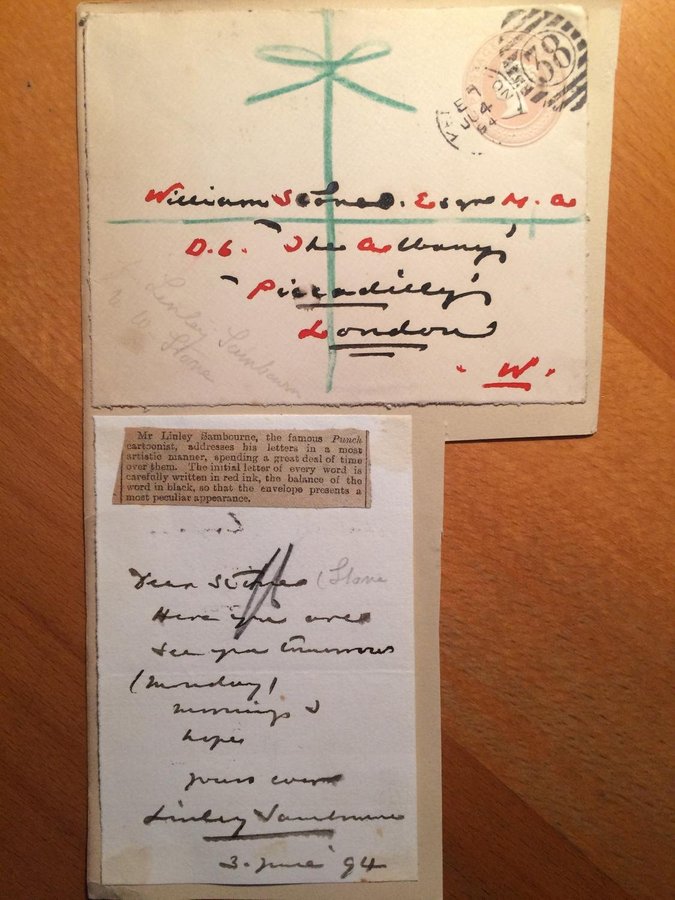 38
JU 4
94
William Stone. Esqre M. A
D. 6. The Albany
Piccadilly
London
. W.
Linley Sambourn
Stone
Mr Linley Sambourne, the famous Punch
cartoonist, addresses his letters in a most
artistic manner, spending a great deal of time
over them. The initial letter of every word is
carefully written in red ink, the balance of the
word in black, so that the envelope presents a
most peculiar appearance.
Dear Stone (Stone
Here you are
see you tomorrow
(Monday)
morning I
hope
yours ever
Linley Sambourne
3. June 94